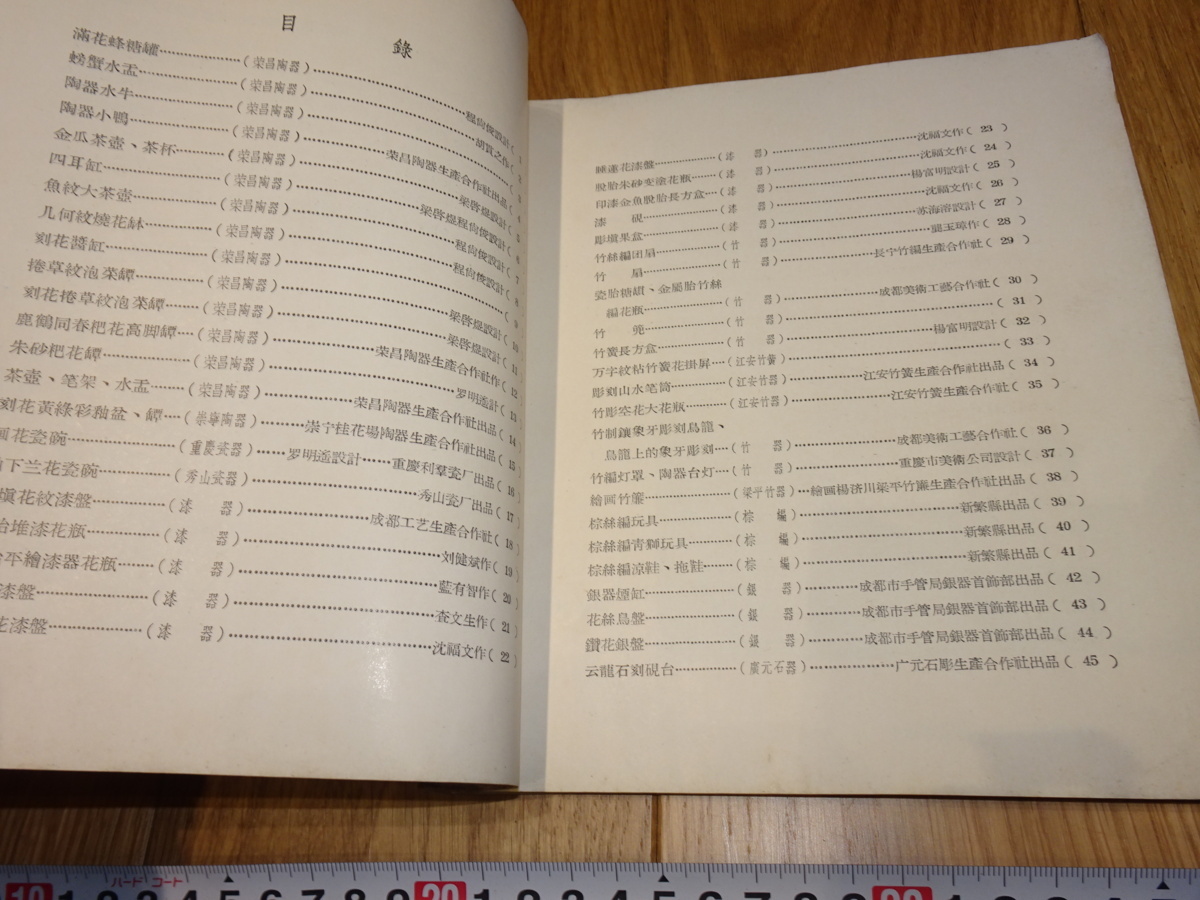 目錄
滿花蜂糖罐……(荣昌陶器)……程尙俊設計(1
螃蟹水盂……(荣昌陶器)……胡貫之作(2
陶器水牛……(荣昌陶器)……(3
陶器小鴨……(荣昌陶器)……荣昌陶器生產合作社出品(4
金瓜茶壺、茶杯……(荣昌陶器)……梁啓煜設計(5
四耳缸……(荣昌陶器)……梁啓煜程尙俊設計(6
魚紋大茶壺……(荣昌陶器)……程尙俊設計(7
几何紋燒花缽……(荣昌陶器)……程尙俊設計(8
刻花醬缸……(荣昌陶器)……(9
捲草紋泡菜罈……(荣昌陶器)……梁啓煜設計(10
刻花捲草紋泡菜罈……(荣昌陶器)……梁啓煜設計(11
鹿鶴同春粑花高脚罈…(荣昌陶器)……荣昌陶器生產合作社作(12
朱砂粑花罈……(荣昌陶器)……罗明遙計(13
茶壺、笔架、水盂……(荣昌陶器)……荣昌陶器生產合作社出品(14
刻花黃綠彩釉盆、罈…(崇寧陶器)……崇宁桂花場陶器生產合作社出品(15
花瓷碗……(重慶瓷器)……罗明遙設計……重慶利羣瓷厂出品(16
下兰花瓷碗……(秀山瓷器)……秀山瓷厂出品(17
塡花紋漆盤……(漆 器)……成都工艺生產合作社(18
堆漆花瓶……(漆 器)……刘健斌作(19
平繪漆器花瓶……(漆 器)……藍有智作(20
漆盤……(漆 器)……杳文生作(21
花漆盤……(漆 器)……沈福文作(22
睡蓮花漆盤……(漆 器)……沈福文作(23)
脫胎朱砂变塗花瓶……(漆 器)……沈福文作(24)
印漆金魚脫胎長方盒…(漆 器)……楊富明設計(25)
漆 硯……(漆 器)……沈福文作(26)
彫塡果盒……(漆 器)……苏海溶設計(27)
竹絲編团扇……(竹 器)……龔玉璋作(28)
竹 扇……(竹 器)……長宁竹編生產合作社(29)
瓷胎糖罐、金屬胎竹絲
編花瓶……(竹 器)……成都美術工藝合作社(30)
竹 兠……(竹 器)……(31)
竹簧長方盒……(竹 器)……楊富明設計(32)
万字紋粘竹簧花掛屏…(江安竹簧)……(33)
彫刻山水笔筒……(江安竹器)……江安竹簧生產合作社出品(34)
竹彫空花大花瓶……(江安竹器)……江安竹簧生產合作社(35)
竹制鑲象牙彫刻烏龍、
烏龍上的象牙彫刻…(竹 器)……成都美術工藝合作社(36)
竹編灯罩、陶器台灯…(竹 器)……重慶市美術公司設計(37)
繪画竹簾……(梁平竹器)…繪画楊济川梁平竹簾生產合作社出品(38)
棕絲編玩具……(棕 編)……新繁縣出品(39)
棕絲編靑獅玩具……(棕 編)……新繁縣出品(40)
棕絲編涼鞋、拖鞋……(棕 編)……新繁縣出品(41)
銀器煙缸……(銀 器)……成都市手管局銀器首飾部出品(42)
花絲鳥盤……(銀 器)……成都市手管局銀器首飾部出品(43)
鑽花銀盤……(銀 器)……成都市手管局銀器首飾部出品(44)
云龍石刻硯台……(廣元石器)……广元石彫生產合作社出品(45)
ハードコート
10 1 2 3 4 5 6 7 8 9 20 1 2 3 4 5 6 7 8 9 30 1 2 3 4 5 6